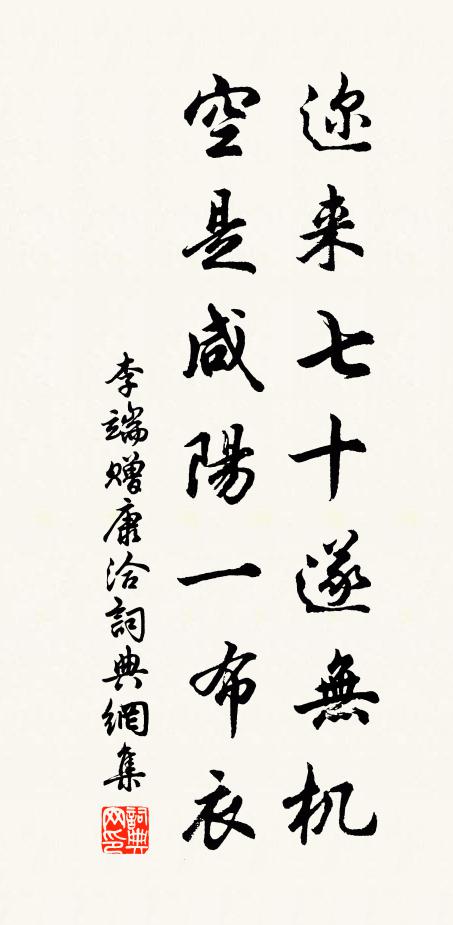 迩来七十遂無机
空是咸陽一布衣
李端赠康洽詞典網集
詞典网印